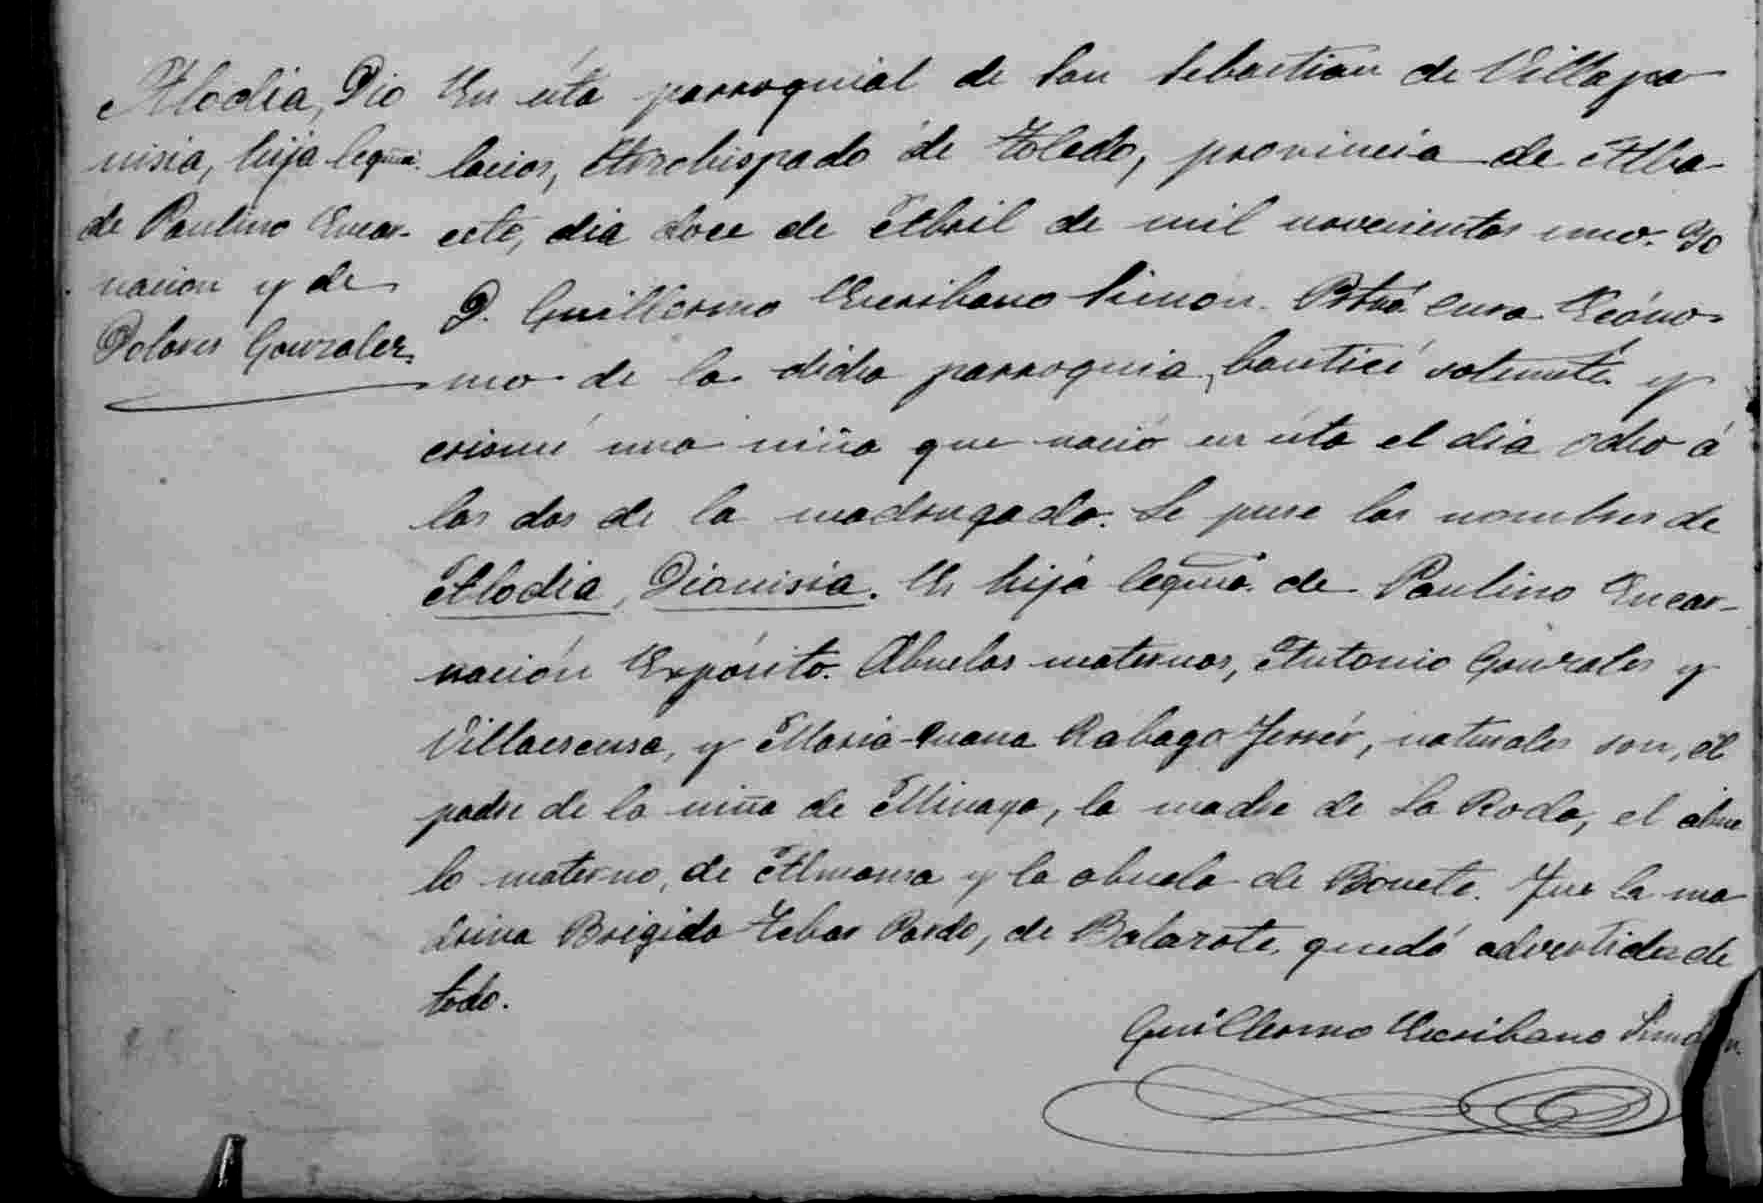 Alodia, Dio
nisia, hija legma.
de Paulino Encar-
nacion y de
Dolores Gonzalez
En esta parroquial de San Sebastian de Villapa
lacios, Arzobispado de Toledo, provincia de Alba-
cete, dia doce de Abril de mil novecientos uno. Yo
D. Guillermo Escribano Simon. Pbtro. Cura Ecóno-
mo de la dicha parroquia, bauticé solemte. y
crismé una niña que nació en esta el dia ocho á
las dos de la madrugada. Le puse los nombres de
Alodia, Dionisia. Es hija legma. de Paulino Encar-
nación Expósito. Abuelos maternos, Antonio Gonzales y
Villaescusa, y Maria-Juana Rabago Ferrér, naturales son, el
padre de la niña de Minaya, la madre de La Roda, el abue
lo materno, de Almansa y la abuela de Bonete. Fue la ma
drina Brigida Tebar Pardo, de Balazote, quedó advertida de
todo.
Guillermo Escribano Simon.